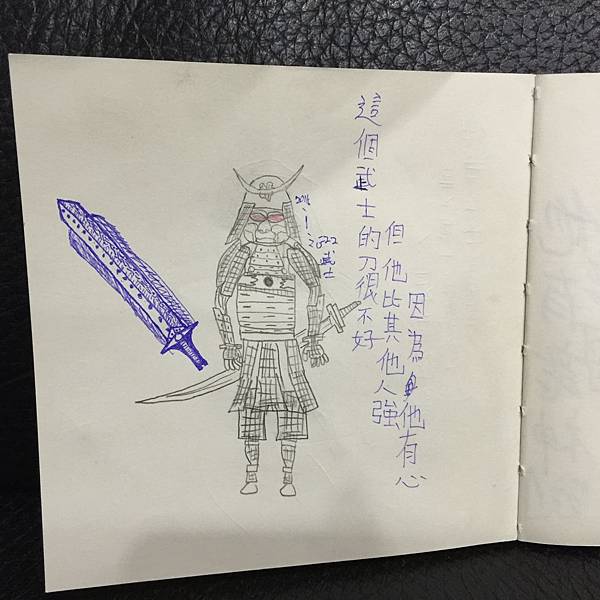 這個武士的刀很不好
但他比其他人強
因為他有心
武士